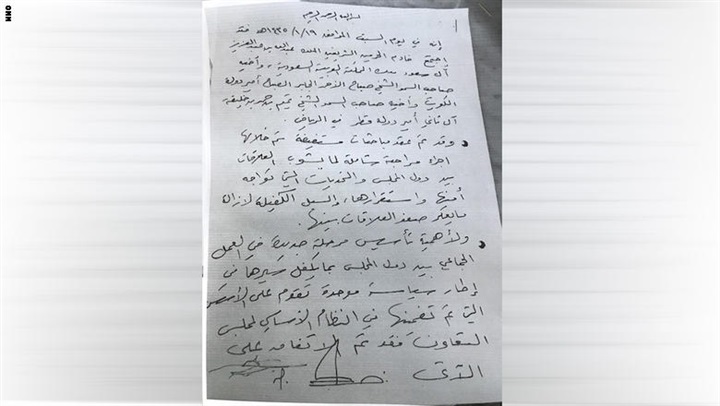 CNN
بسم الله الرحمن الرحيم
إنه في يوم السبت الموافق ١٤٣٥/١/١٩هـ فقد
اجتمع خادم الحرمين الشريفين الملك عبدالله بن عبدالعزيز
آل سعود ملك المملكة العربية السعودية، وأخيه
صاحب السمو الشيخ صباح الأحمد الجابر الصباح أمير دولة
الكويت وأخيه صاحب السمو الشيخ تميم بن حمد بن خليفة
آل ثاني أمير دولة قطر في الرياض.
وقد تم عقد مباحثات مستفيضة تم خلالها
اجراء مراجعة شاملة لما يشوب العلاقات
بين دول المجلس والتحديات التي تواجه
أمنها واستقرارها، والسبل الكفيلة لازالة
ما يعكر صفو العلاقات بينها.
ولأهمية تأسيس مرحلة جديدة في العمل
الجماعي بين دول المجلس بما يكفل سيرها في
إطار سياسة موحدة تقوم على الأسس
التي تم تضمينها في النظام الأساسي لمجلس
التعاون، فقد تم الاتفاق على
الآتي: